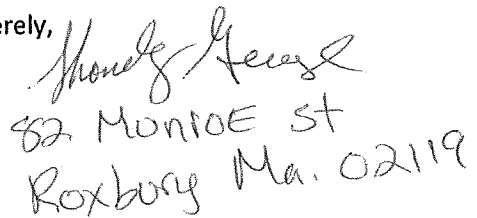 erely,
82 Monroe St
Roxbury Ma. 02119